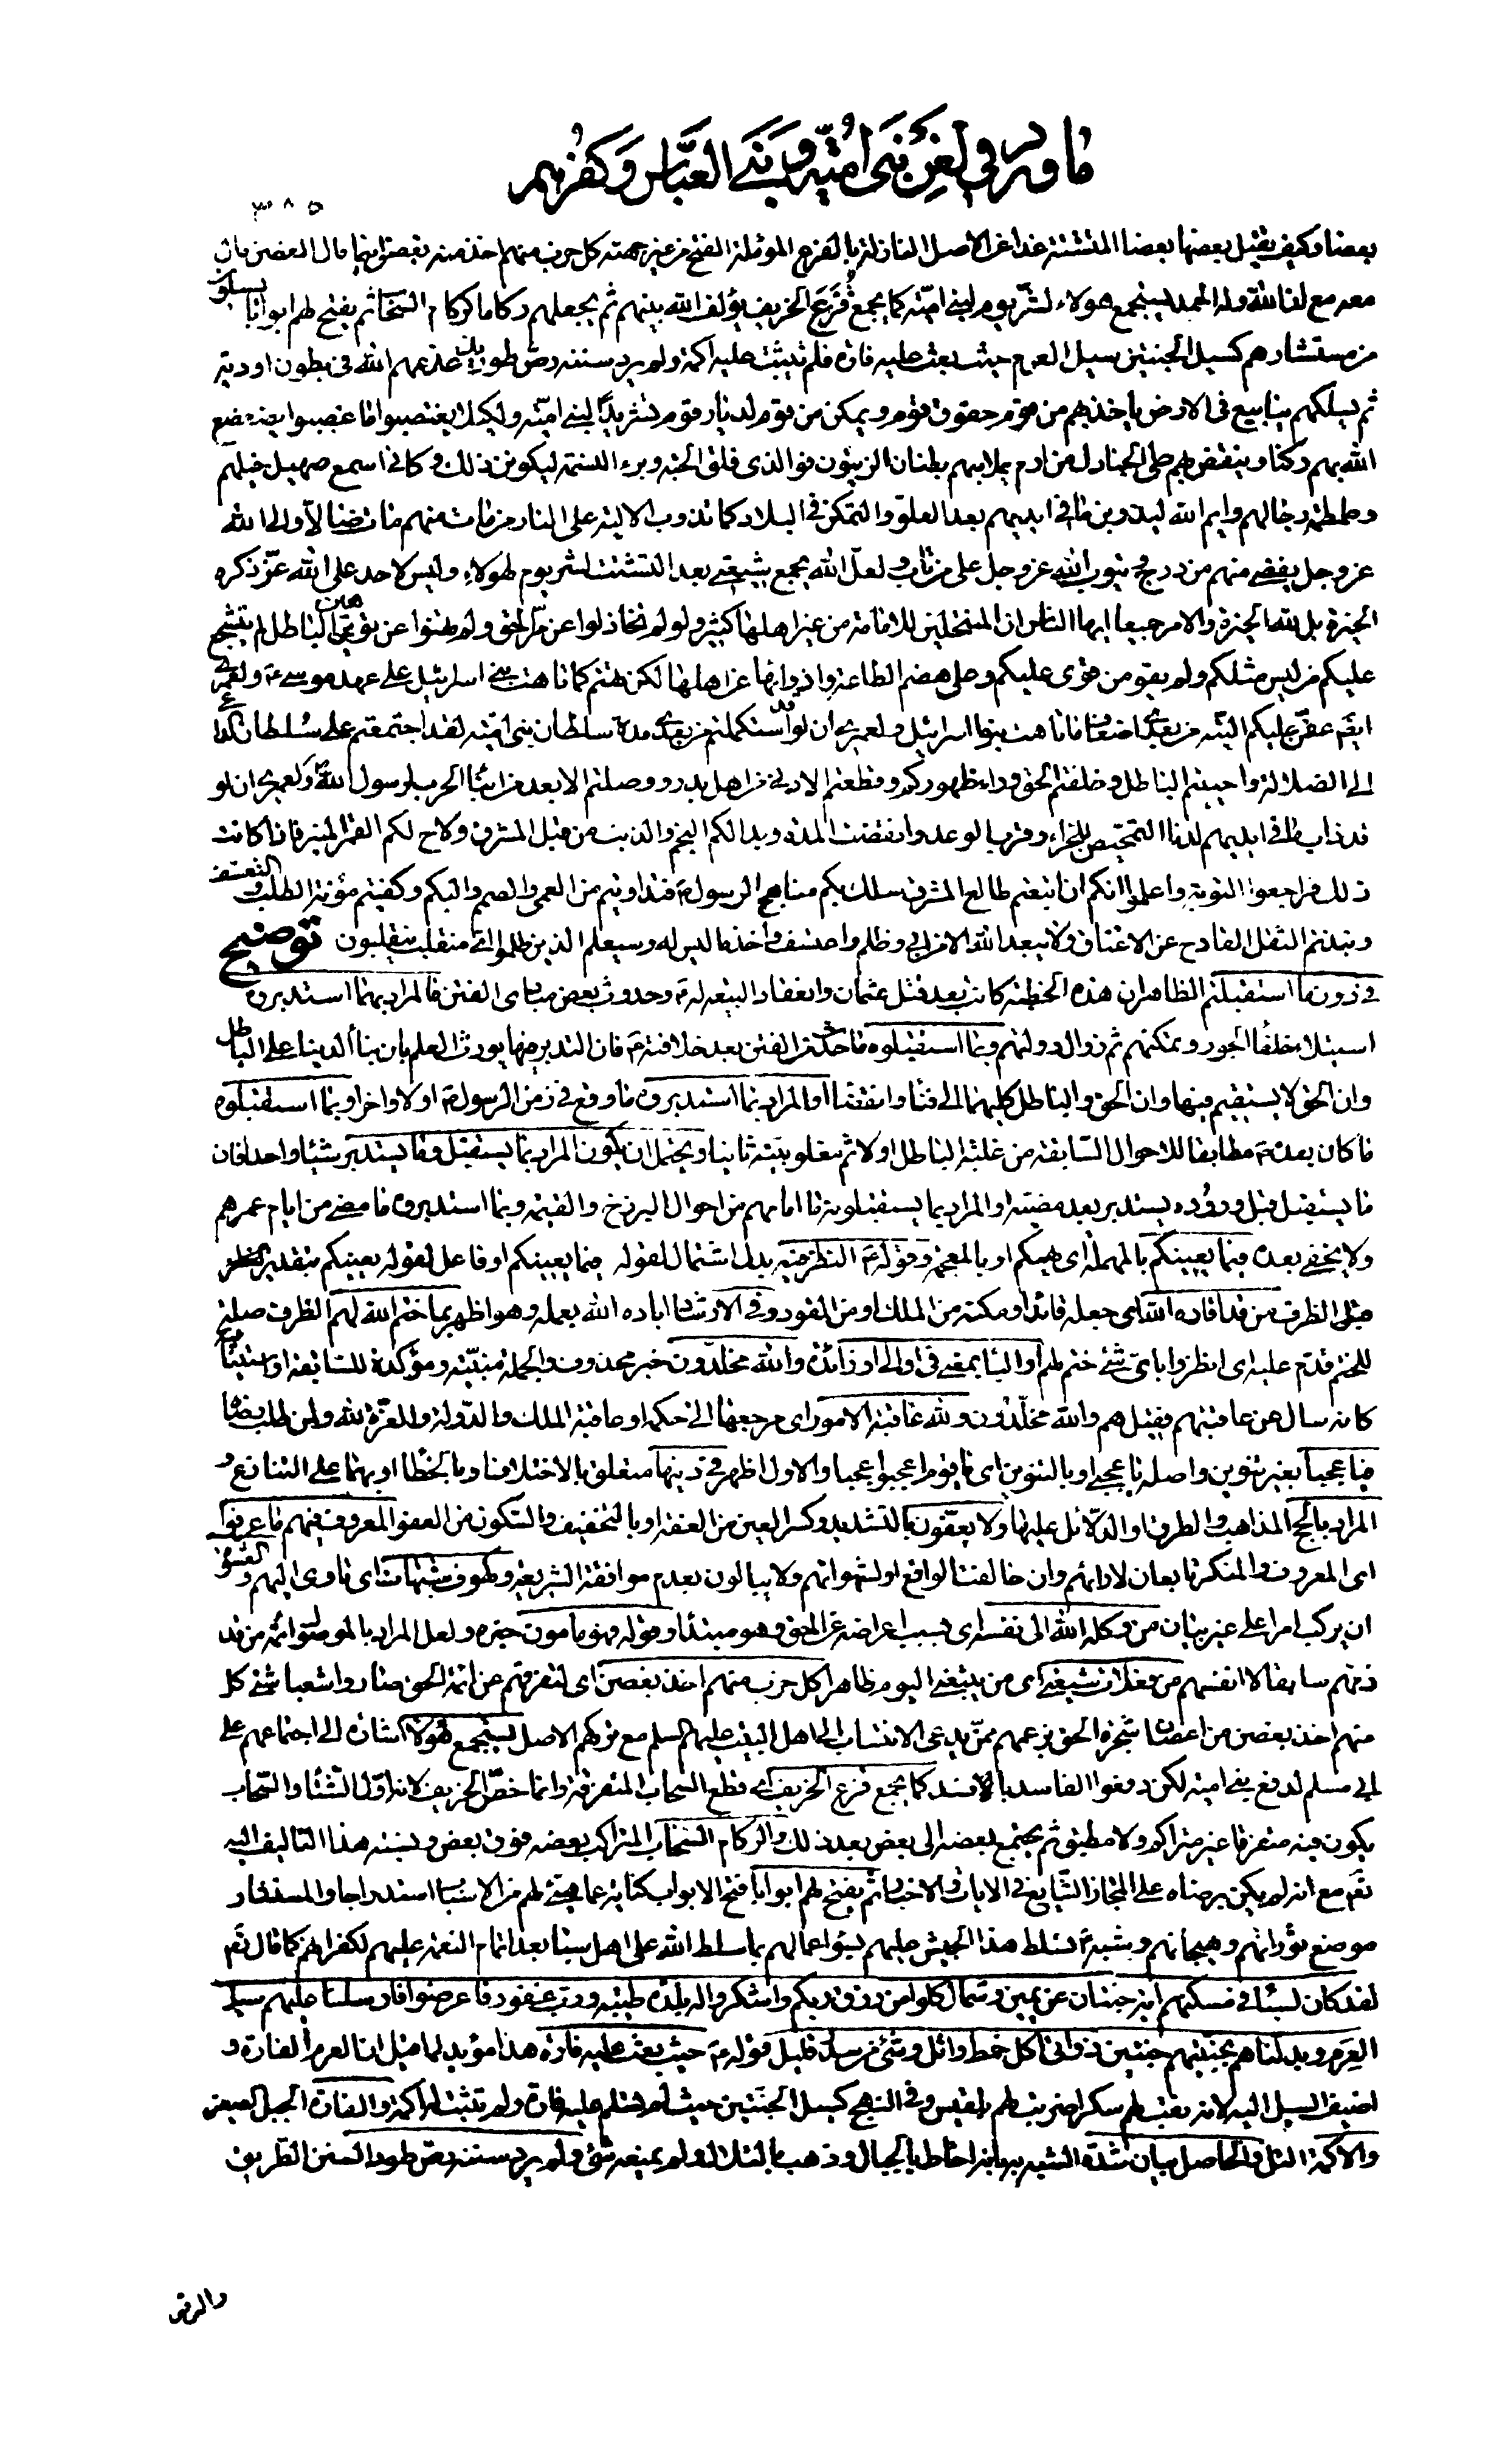 ما ورد في لعن بنى امية وبنى العباس وكفرهم
٣٨٥
بعضا وكيف يقتل بعضها بعضا المتشتتة غدا عن الاصل النازلة بالفرع المؤملة الفتح من غير جهته كل حزب منهم اخذ منه بغصن اينما مال الغصن مال
معه مع ان الله وله الحمد سيجمع هؤلاء لشر يوم لبني امية كما يجمع قزع الخريف يؤلف الله بينهم ثم يجعلهم ركاما كركام السحاب ثم يفتح لهم ابوابا يسيلون
من مستثارهم كسيل الجنتين سيل العرم حيث بعث عليه فارة فلم تثبت عليه اكمة ولم يرد سننه رص طود يذعذعهم الله في بطون اودية
ثم يسلكهم ينابيع في الارض ياخذ بهم من قوم حقوق قوم ويمكن من قوم لديار قوم تشريدا لبني امية ولكيلا يغتصبوا ما غصبوا يضعضع
الله بهم ركنا وينقض بهم طى الجنادل من ارم ويملا بهم بطنان الزيتون فو الذى فلق الحبة وبرء النسمة ليكونن ذلك وكانى اسمع صهيل خيلهم
وطمطمة رجالهم وايم الله ليذوبن ما في ايديهم بعد العلو والتمكن في البلاد كما تذوب الالية على النار من مات منهم مات ضالا والى الله
عز وجل يفضى منهم من درج ويتوب الله عز وجل على من تاب ولعل الله يجمع شيعتى بعد التشتت لشر يوم لهؤلاء وليس لاحد على الله عز ذكره
الخيرة بل لله الخيرة والامر جميعا ايها الناس ان المنتحلين للامامة من غير اهلها كثير ولو لم تخاذلوا عن مر الحق ولم تهنوا عن توهين الباطل لم يتشجع
عليكم من ليس مثلكم ولم يقو من قوى عليكم وعلى هضم الطاعة وازوائها عن اهلها لكن تهتم كما تاهت بنى اسرائيل على عهد موسى ع ولعمرى
ليضاعفن عليكم التيه من بعدى اضعاف ما تاهت بنوا اسرائيل ولعمرى ان لو قد استكملتم من بعدى مدة سلطان بنى امية لقد اجتمعتم على سلطان الداعى
الى الضلالة واحييتم الباطل وخلفتم الحق وراء ظهوركم وقطعتم الادنى من اهل بدر ووصلتم الابعد من ابناء الحرب لرسول الله ولعمرى ان لو
قد ذاب ما في ايديهم لدنا التمحيص للجزاء وقرب الوعد وانقضت المدة وبدا لكم النجم ذو الذنب من قبل المشرق ولاح لكم القمر المنير فاذا كانت
ذلك فراجعوا التوبة واعلموا انكم ان اتبعتم طالع المشرق سلك بكم مناهج الرسول فتداويتم من العمى والصمم والبكم وكفيتم مؤنة الطلب والتعسف
ونبذتم الثقل الفادح عن الاعناق ولا يبعد الله الا من ابى وظلم واعتسف واخذ ما ليس له وسيعلم الذين ظلموا اى منقلب ينقلبون توضيح
في دون ما استقبلتم الظاهر ان هذه الخطبة كانت بعد قتل عثمان وانعقاد البيعة له وحدوث بعض مبادى الفتن فالمراد بما استدبروه
استيلاء خلفاء الجور وتمكنهم ثم زوال دولتهم وبما استقبلوه ما حدث من الفتن بعد خلافته فان التدبر فيها يورث العلم بان بناء الدنيا على الباطل
وان الحق لا يستقيم فيها وان الحق والباطل كليهما الى فناء وانقضاء او المراد بما استدبروه ما وقع في زمن الرسول اولا واخرا وبما استقبلوه
ما كان بعده مطابقا للاحوال السابقة من غلبة الباطل اولا ثم مغلوبيته ثانيا ويحتمل ان يكون المراد بما يستقبل وما يستدبر شيئا واحدا فان
ما يستقبل قبل وروده يستدبر بعد مضيه او المراد بما يستقبلونه ما امامهم من احوال البرزخ والقيمة وبما استدبروه ما مضى من ايام عمرهم
ولا يخفى بعده فيما يعينكم بالمهملة اى يهمكم او بالمعجمة وقوله ع النظر فيه بدل اشتمال لقوله فيما يعينكم او فاعل لقوله يعينكم بتقدير
قبل الظرف من قد اقاده الله اى جعله قائدا ومكنه من الملك او من القود وفي الارشاد اباده الله بعمله وهو اظهر بما ختم الله لهم الظرف صلة
للختم قدم عليه اى انظروا باى شئ ختم لهم او الباء بمعنى في او الى او زائدة والله مخلدون خبر محذوف والجملة مبينة ومؤكدة للسابقة او استيناف
كانه سال عن عاقبتهم فقيل هم والله مخلدون ولله عاقبة الامور اى مرجعها الى حكمه او عاقبة الملك والدولة والعزة لله ولمن طلب رضاه
فيا عجبا بغير تنوين واصله يا عجبى او بالتنوين اى يا قوم اعجبوا عجبا والاول اظهر في دينها متعلق بالاختلاف او بالخطاء او بهما على التنازع و
المراد بالحجج المذاهب والطرق او الدلائل عليها ولا يعفون بالتشديد وكسر العين من العفة او بالتخفيف والسكون من العفو المعروف فيهم ما عرفوا
اى المعروف والمنكر تابعان لارائهم وان خالفت الواقع او لشهواتهم ولا يبالون بعدم موافقة الشريعة وطوف شبهات اى ياوى اليهم والعشوة
ان يركب امرا على غير بيان من وكله الله الى نفسه اى بسبب اعراضه عن الحق وهو مبتدا وقوله فهو مامون خبره ولعل المراد بالموصول ائمة من قد
ذمهم سابقا لا انفسهم من فعلات شيعتى اى من يتبعنى اليوم ظاهرا كل حزب منهم اخذ بغصن اى لتفرقهم عن ائمة الحق صاروا شعبا شتى كل
منهم اخذ بغصن من اغصان شجرة الحق بزعمهم ممن يدعى الانتساب الى اهل البيت عليهم السلم مع تركهم الاصل سيجمع هؤلاء اشارة الى اجتماعهم على
ابى مسلم لدفع بنى امية لكن دفعوا الفاسد بالافسد كما يجمع قزع الخريف اى قطع السحاب المتفرقة وانما خص الخريف لانه اول الشتاء والسحاب
يكون فيه متفرقا غير متراكم ولا مطبق ثم يجتمع بعضه الى بعض بعد ذلك والركام السحاب المتراكب بعضه فوق بعض ونسبته هذا التاليف اليه
تعم مع انه لم يكن برضاه على المجاز الشايع في الايات والاخبار ثم يفتح لهم ابوابا فتح الابواب كناية عما هيئ لهم من الاسباب استدراجا والمستثار
موضع ثورانهم وهيجانهم وشبه تسلط هذا الجيش عليهم لسوء اعمالهم بما سلط الله على اهل سبا بعد اتمام النعمة عليهم لكفرانهم كما قال تعم
لقد كان لسبأ في مسكنهم اية جنتان عن يمين وشمال كلوا من رزق ربكم واشكروا له بلدة طيبة ورب غفور فاعرضوا فارسلنا عليهم سيل
العرم وبدلناهم بجنتيهم جنتين ذواتى اكل خمط واثل وشئ من سدر قليل قوله ع حيث بعث عليه فارة هذا مؤيد لما قيل ان العرم الفارة و
اضيف السيل اليه لانه نقب لهم سكرا ضربت لهم بلقيس وفي النهج كسيل الجنتين حيث لم تسلم عليه قارة ولم تثبت له اكمة والقارة الجبل الصغير
والاكمة التل والحاصل بيان شدة الشبه به بانه احاط بالجبال وذهب بالتلال ولم يمنعه شئ ولم يرد سننه رص طود السنن الطريق
والرص